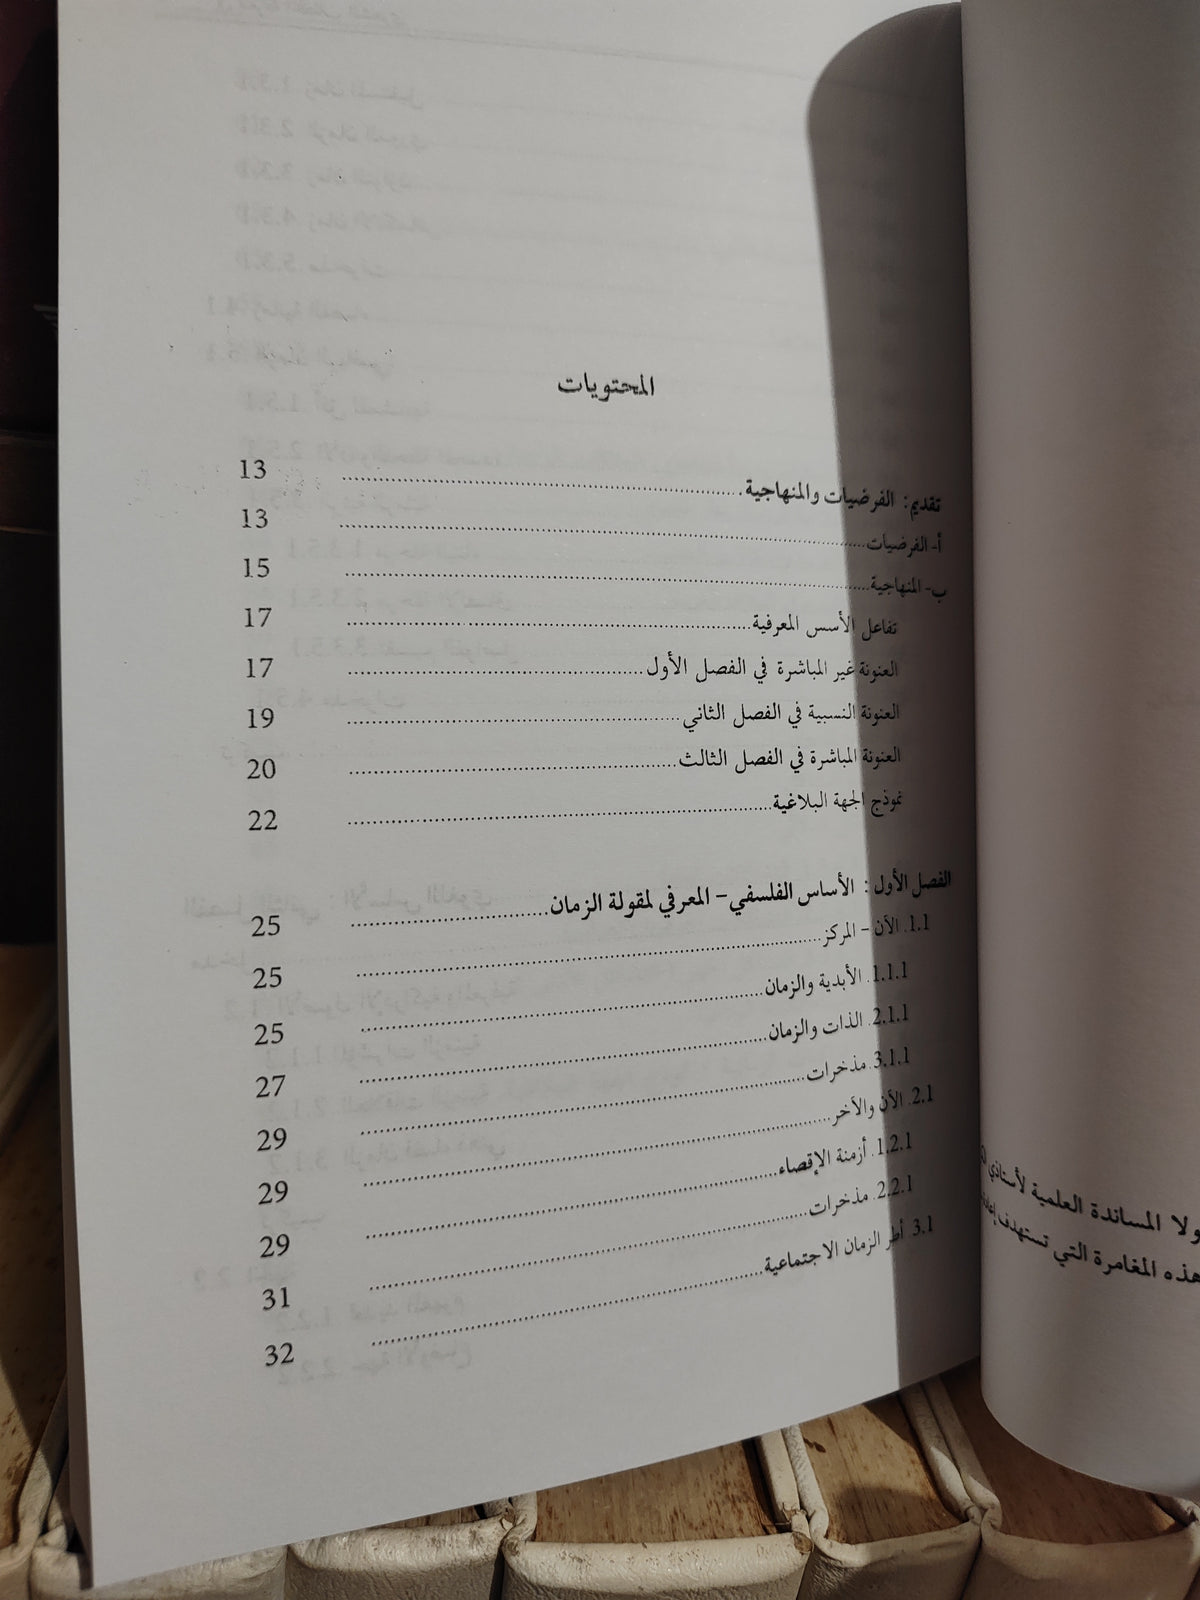 المحتويات
تقديم: الفرضيات والمنهاجية 13
أ- الفرضيات 13
ب- المنهاجية 15
تفاعل الأسس المعرفية 17
العنونة غير المباشرة في الفصل الأول 17
العنونة النسبية في الفصل الثاني 19
العنونة المباشرة في الفصل الثالث 20
نموذج الجهة البلاغية 22
الفصل الأول: الأساس الفلسفي- المعرفي لمقولة الزمان 25
1.1. الآن - المركز 25
1.1.1. الأبدية والزمان 25
2.1.1. الذات والزمان 27
3.1.1. مذخرات 29
2.1. الآن والآخر 29
1.2.1. أزمنة الإقصاء 29
2.2.1. مذخرات 31
3.1. أطر الزمان الاجتماعية 32
ولا المساندة العلمية لأستاذي
هذه المغامرة التي تستهدف